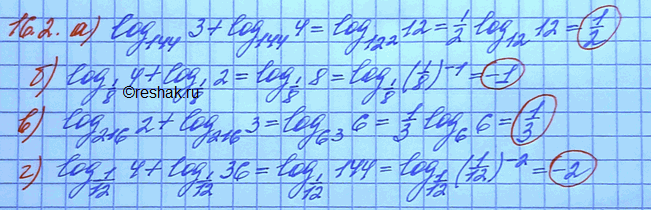 16.2. а) log₁₄₄ 3 + log₁₄₄ 4 = log₁₂² 12 = 1/2 log₁₂ 12 = 1/2
б) log_1/8 4 + log_1/8 2 = log_1/8 8 = log_1/8 (1/8)⁻¹ = -1
©reshak.ru
в) log₂₁₆ 2 + log₂₁₆ 3 = log₆³ 6 = 1/3 log₆ 6 = 1/3
г) log_1/12 4 + log_1/12 36 = log_1/12 144 = log_1/12 (1/12)⁻² = -2